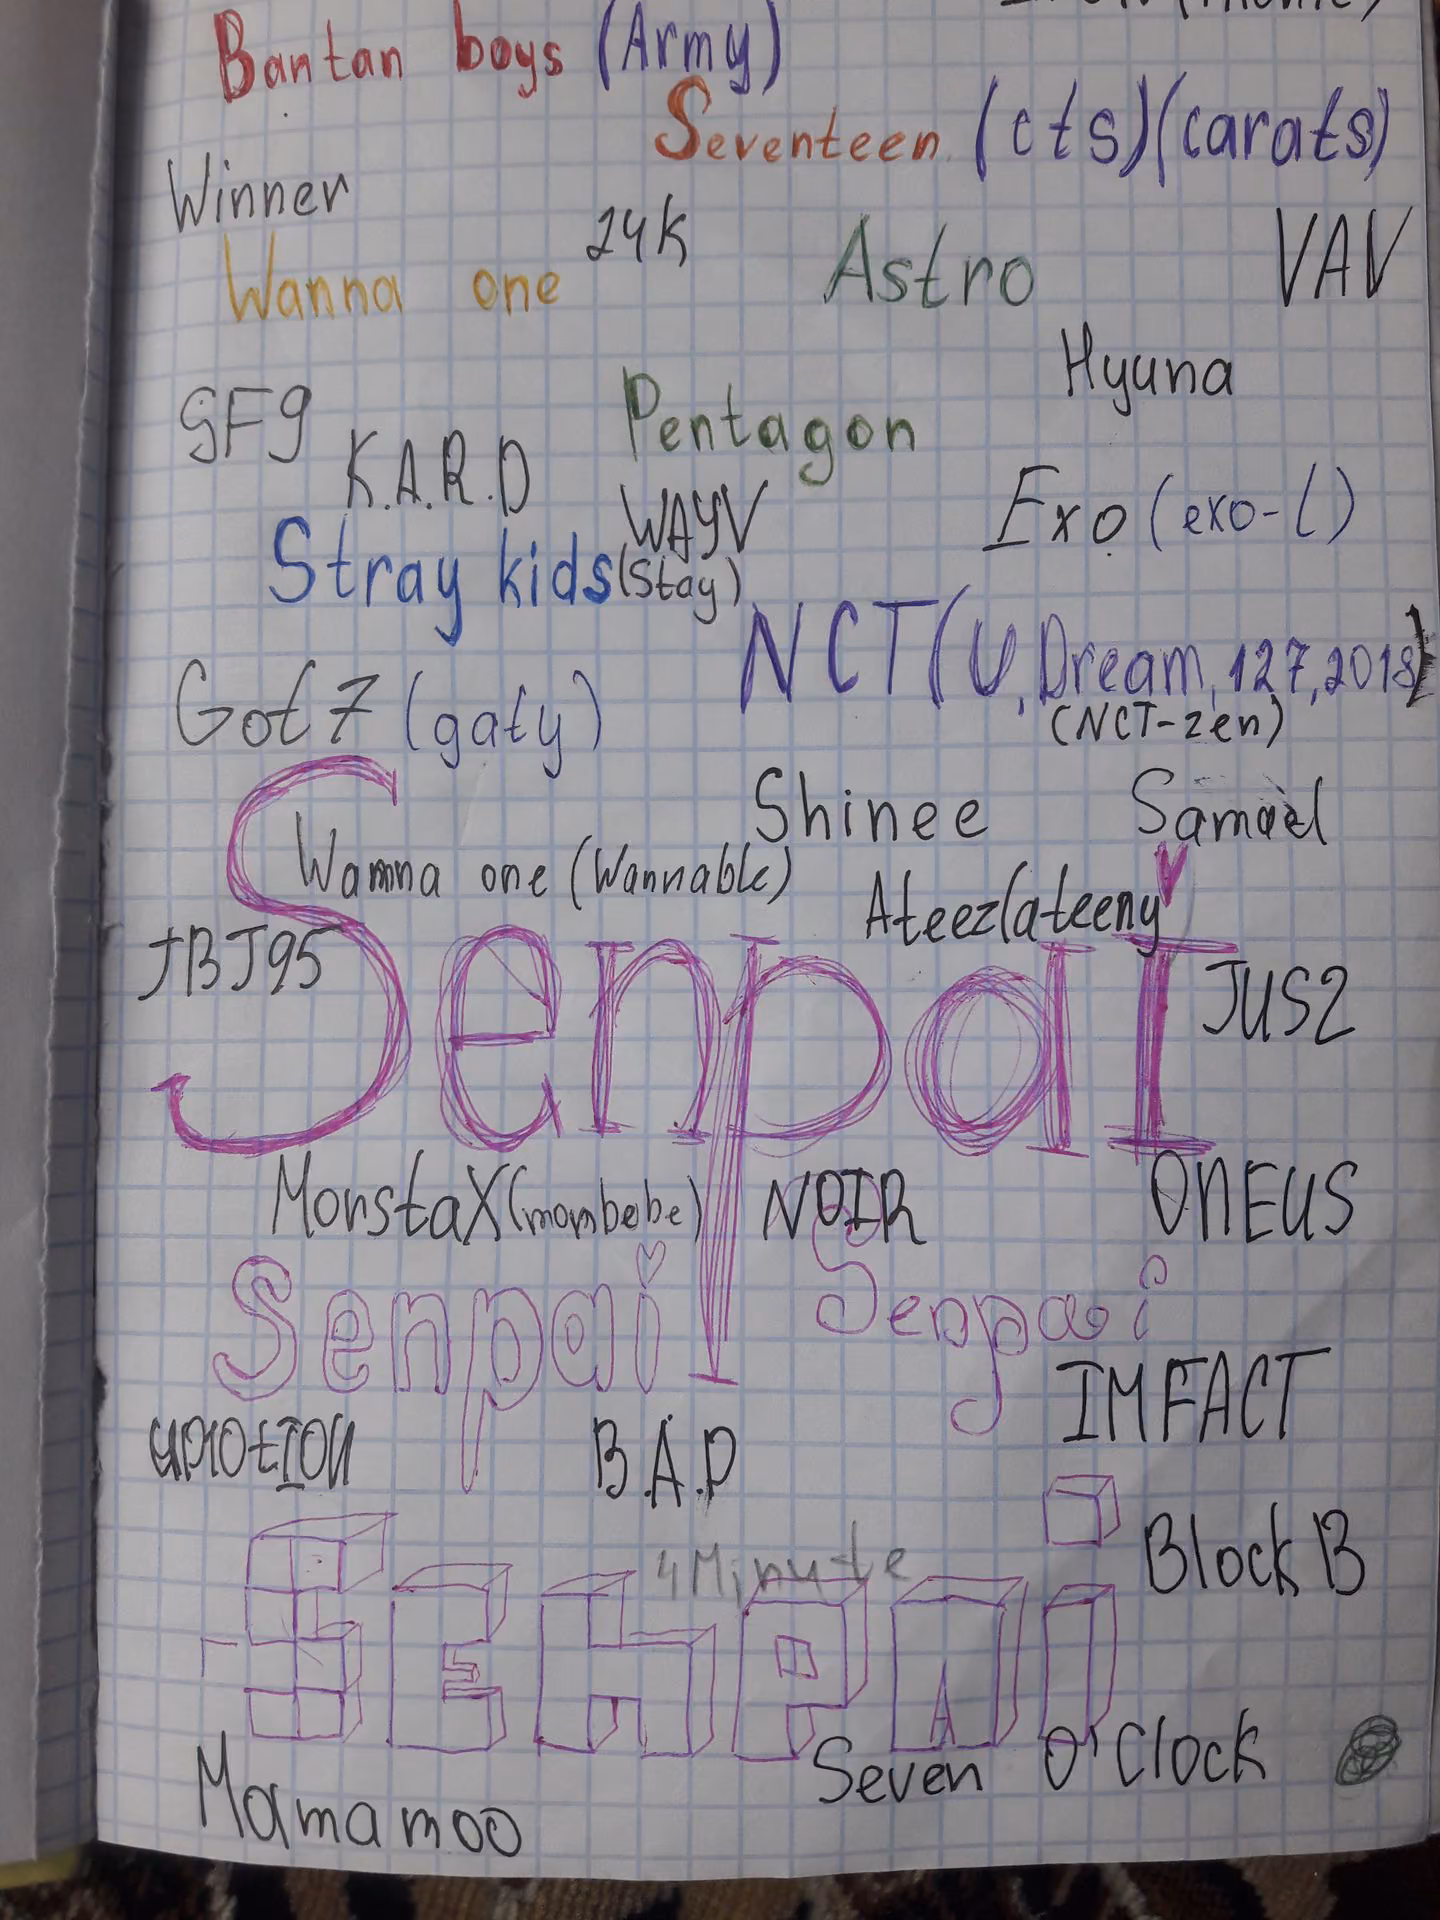 Bantan boys (Army)
Seventeen (cts)(carats)
Winner
24K
Wanna one
Astro
VAV
Hyuna
SF9
Pentagon
K.A.R.D
WAYV
Exo (exo-l)
Stray kids (Stay)
NCT (U, Dream, 127, 2018)
(NCT-zen)
Got 7 (gaty)
Shinee
Samuel
Wamna one (Wannable)
Ateez(ateeny
JBJ95
Senpai
JUS2
MonstaX (mombebe)
NOIR
ONEUS
Senpai
Senpai
IMFACT
UP10tION
B.A.P
Block B
4Minute
Senpai
Seven O'Clock
Mamamoo